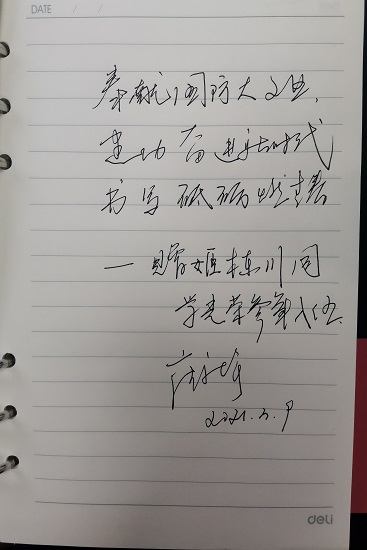 DATE / /
奉献国防大文章,
建功奋进新时代
书写砥砺好青春
—赠姬栋川同
学光荣参军入伍.
2021.3.9
deli